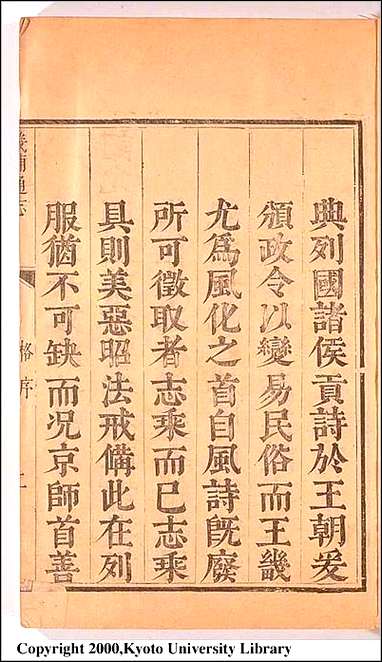 典列國諸侯貢詩於王朝爰
頒政令以變易民俗而王畿
尤為風化之首自風詩既廢
所可徵取者志乘而已志乘
具則美惡昭法戒備此在列
服猶不可缺而况京師首善
畿輔通志
格序
Copyright 2000,Kyoto University Library